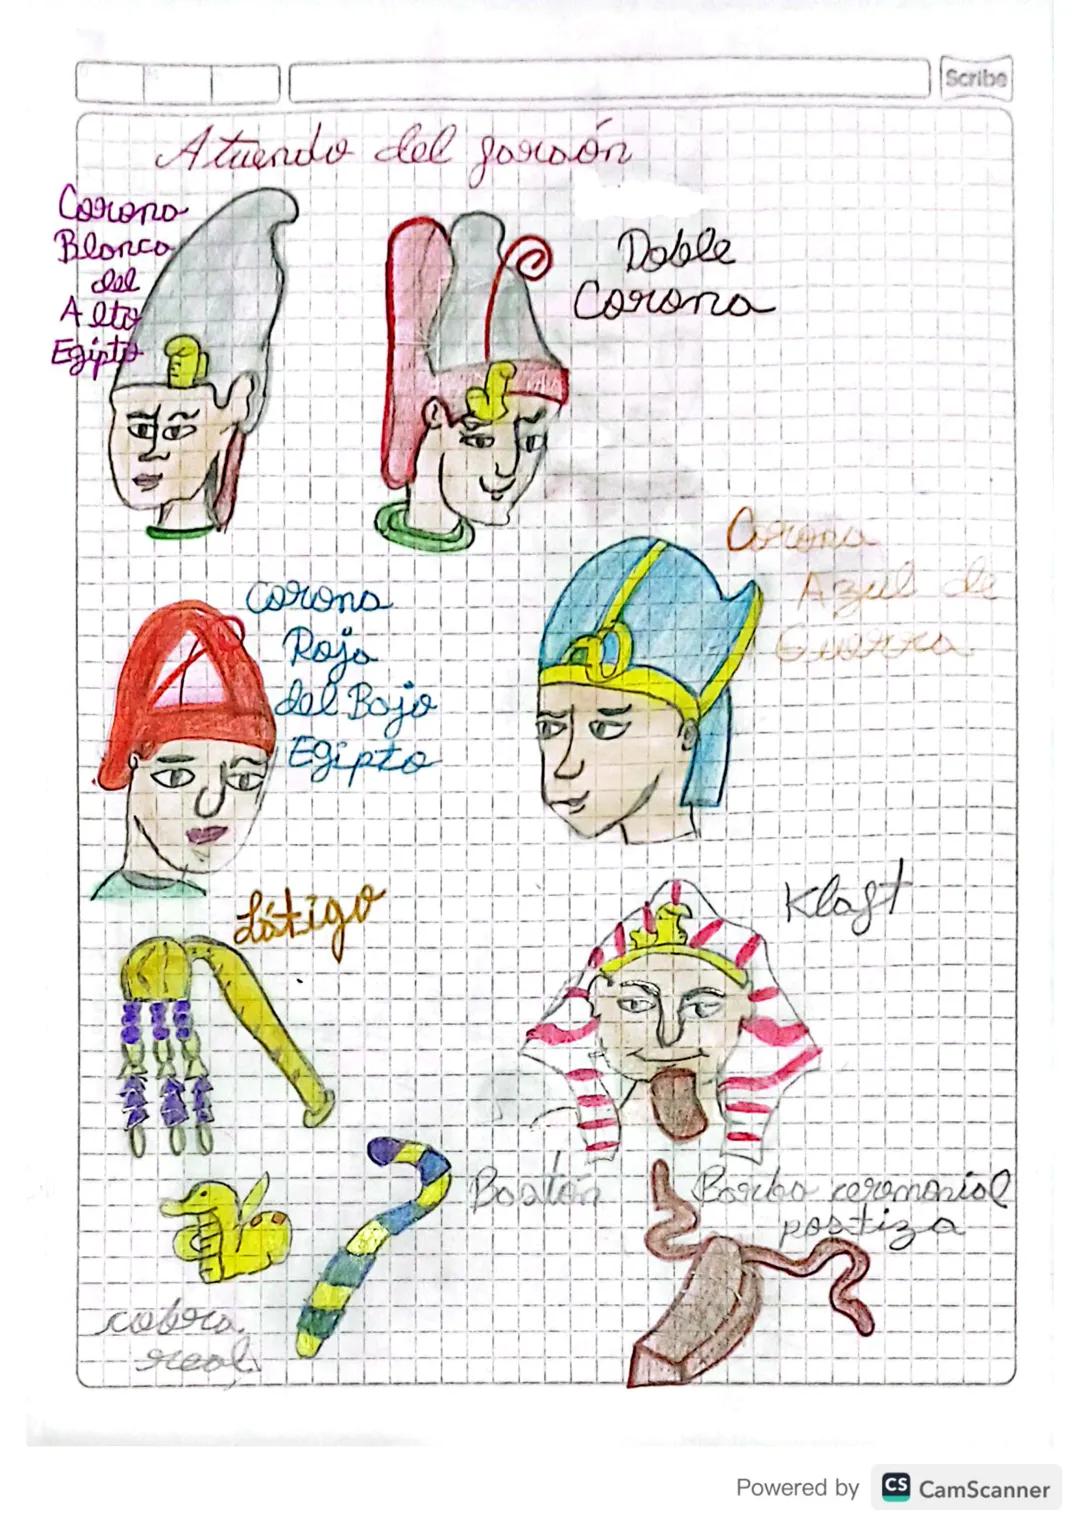 Scribe
Atuendo del faraón
Corona
Blanca
del
Alto
Egipto
Doble
Corona
Corona
Azul de
Guerra
Corona
Roja
del Bajo
Egipto
Látigo
Klaft
Bastón
Barba ceremonial
postiza
cobra
real
Powered by CS CamScanner